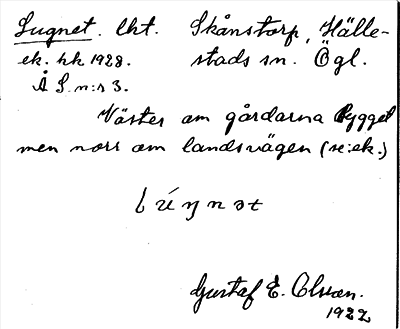 Lugnet. lht. Skånstorp, Hälle-
ek. hk 1928. stads sn. Ögl.
Å S. n:r 3.
Väster om gårdarna Rygget
men norr om landsvägen (se: ek.)
Gustaf E. Olsson.
1922